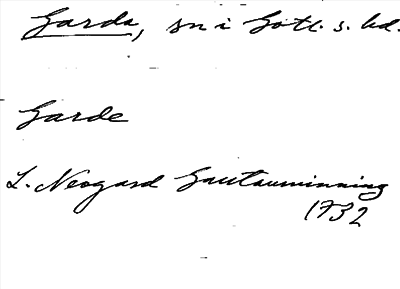 Garda, sn i Gotl. s. hd.
Garde
L. Neogard Gautauminning
1732